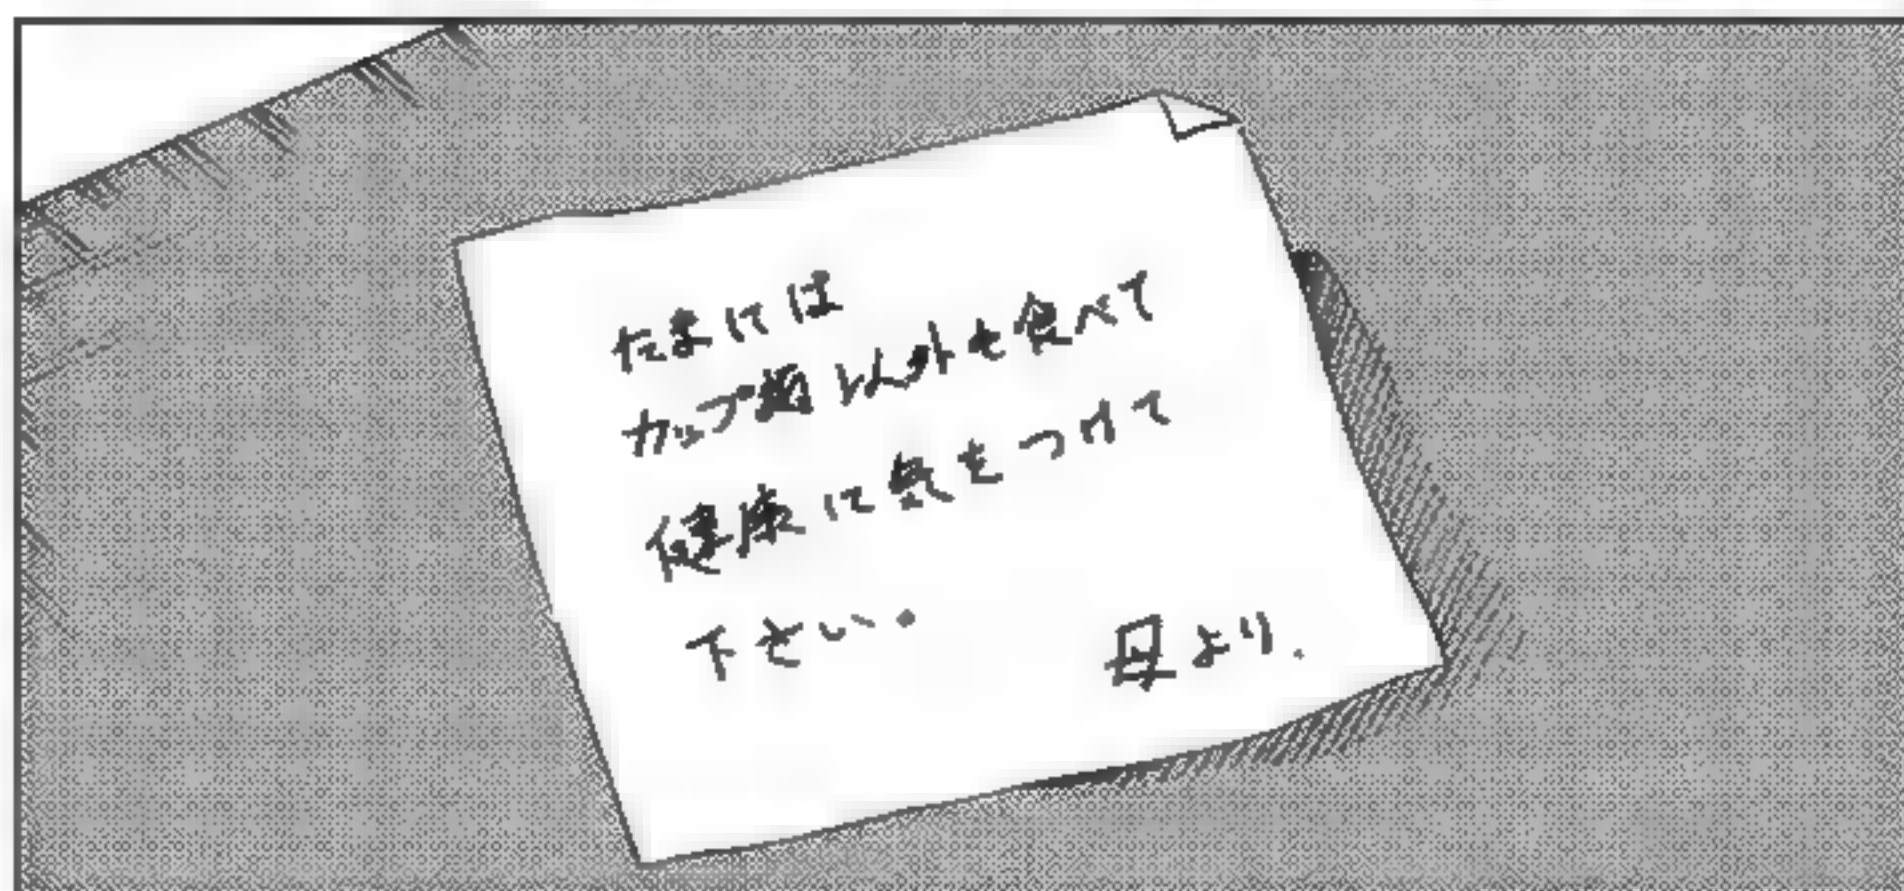 たまには
カップ麺以外も食べて
健康に気をつけて
下さい。
母より.